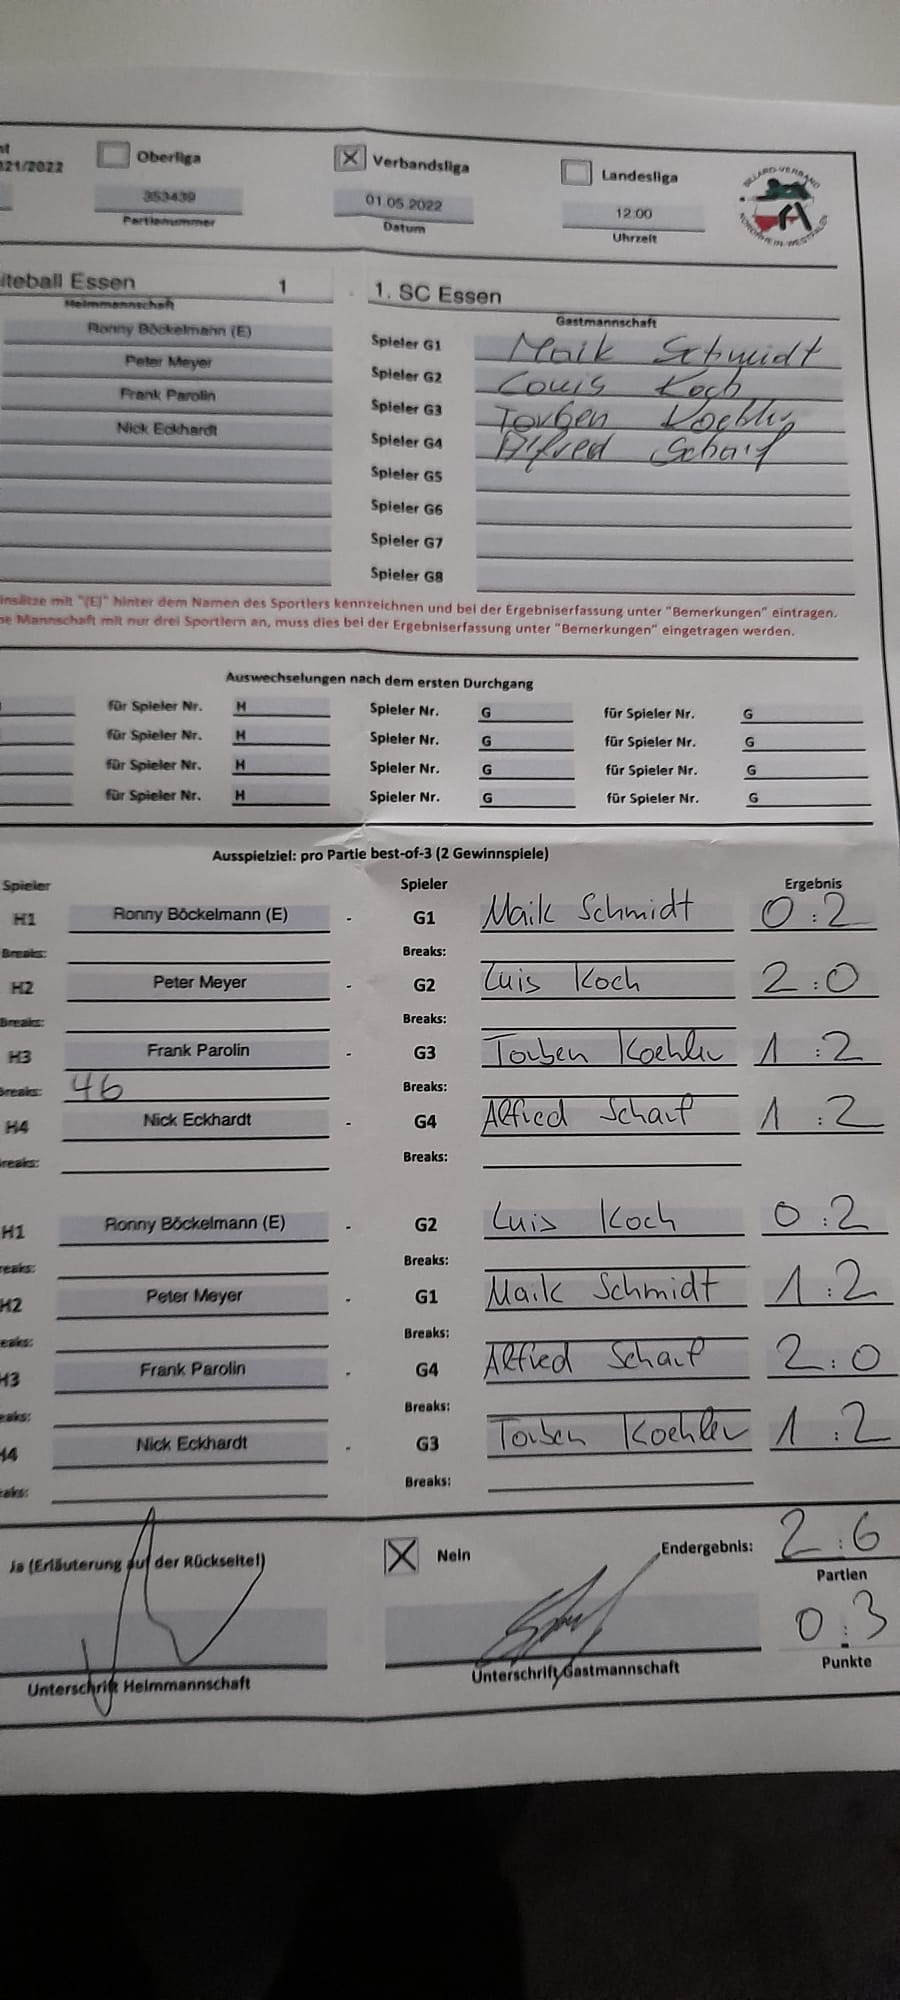 Oberliga Verbandsliga Landesliga
021/2022
353439 01.05.2022 12:00
Partienummer Datum Uhrzeit
BILLARD-VERBAND
NORDRHEIN-WESTFALEN
iteball Essen 1 1. SC Essen
Heimmannschaft Gastmannschaft
Ronny Böckelmann (E) Spieler G1 Maik Schmidt
Peter Meyer Spieler G2 Louis Koch
Frank Parolin Spieler G3 Torben Koehler
Nick Eckhardt Spieler G4 Alfred Scharf
Spieler G5
Spieler G6
Spieler G7
Spieler G8
insätze mit "(E)" hinter dem Namen des Sportlers kennzeichnen und bei der Ergebniserfassung unter "Bemerkungen" eintragen.
ne Mannschaft mit nur drei Sportlern an, muss dies bei der Ergebniserfassung unter "Bemerkungen" eingetragen werden.
Auswechselungen nach dem ersten Durchgang
für Spieler Nr. H Spieler Nr. G für Spieler Nr. G
für Spieler Nr. H Spieler Nr. G für Spieler Nr. G
für Spieler Nr. H Spieler Nr. G für Spieler Nr. G
für Spieler Nr. H Spieler Nr. G für Spieler Nr. G
Ausspielziel: pro Partie best-of-3 (2 Gewinnspiele)
Spieler Spieler Ergebnis
H1 Ronny Böckelmann (E) - G1 Maik Schmidt 0:2
Breaks: Breaks:
H2 Peter Meyer - G2 Luis Koch 2:0
Breaks: Breaks:
H3 Frank Parolin - G3 Torben Koehler 1:2
Breaks: 46 Breaks:
H4 Nick Eckhardt - G4 Alfred Scharf 1:2
reaks: Breaks:
H1 Ronny Böckelmann (E) - G2 Luis Koch 0:2
reaks: Breaks:
H2 Peter Meyer - G1 Maik Schmidt 1:2
eaks: Breaks:
H3 Frank Parolin - G4 Alfred Scharf 2:0
eaks: Breaks:
H4 Nick Eckhardt - G3 Torben Koehler 1:2
aks: Breaks:
Ja (Erläuterung auf der Rückseite!) Nein Endergebnis: 2:6
Partien
0:3
Unterschrift Heimmannschaft Unterschrift Gastmannschaft Punkte